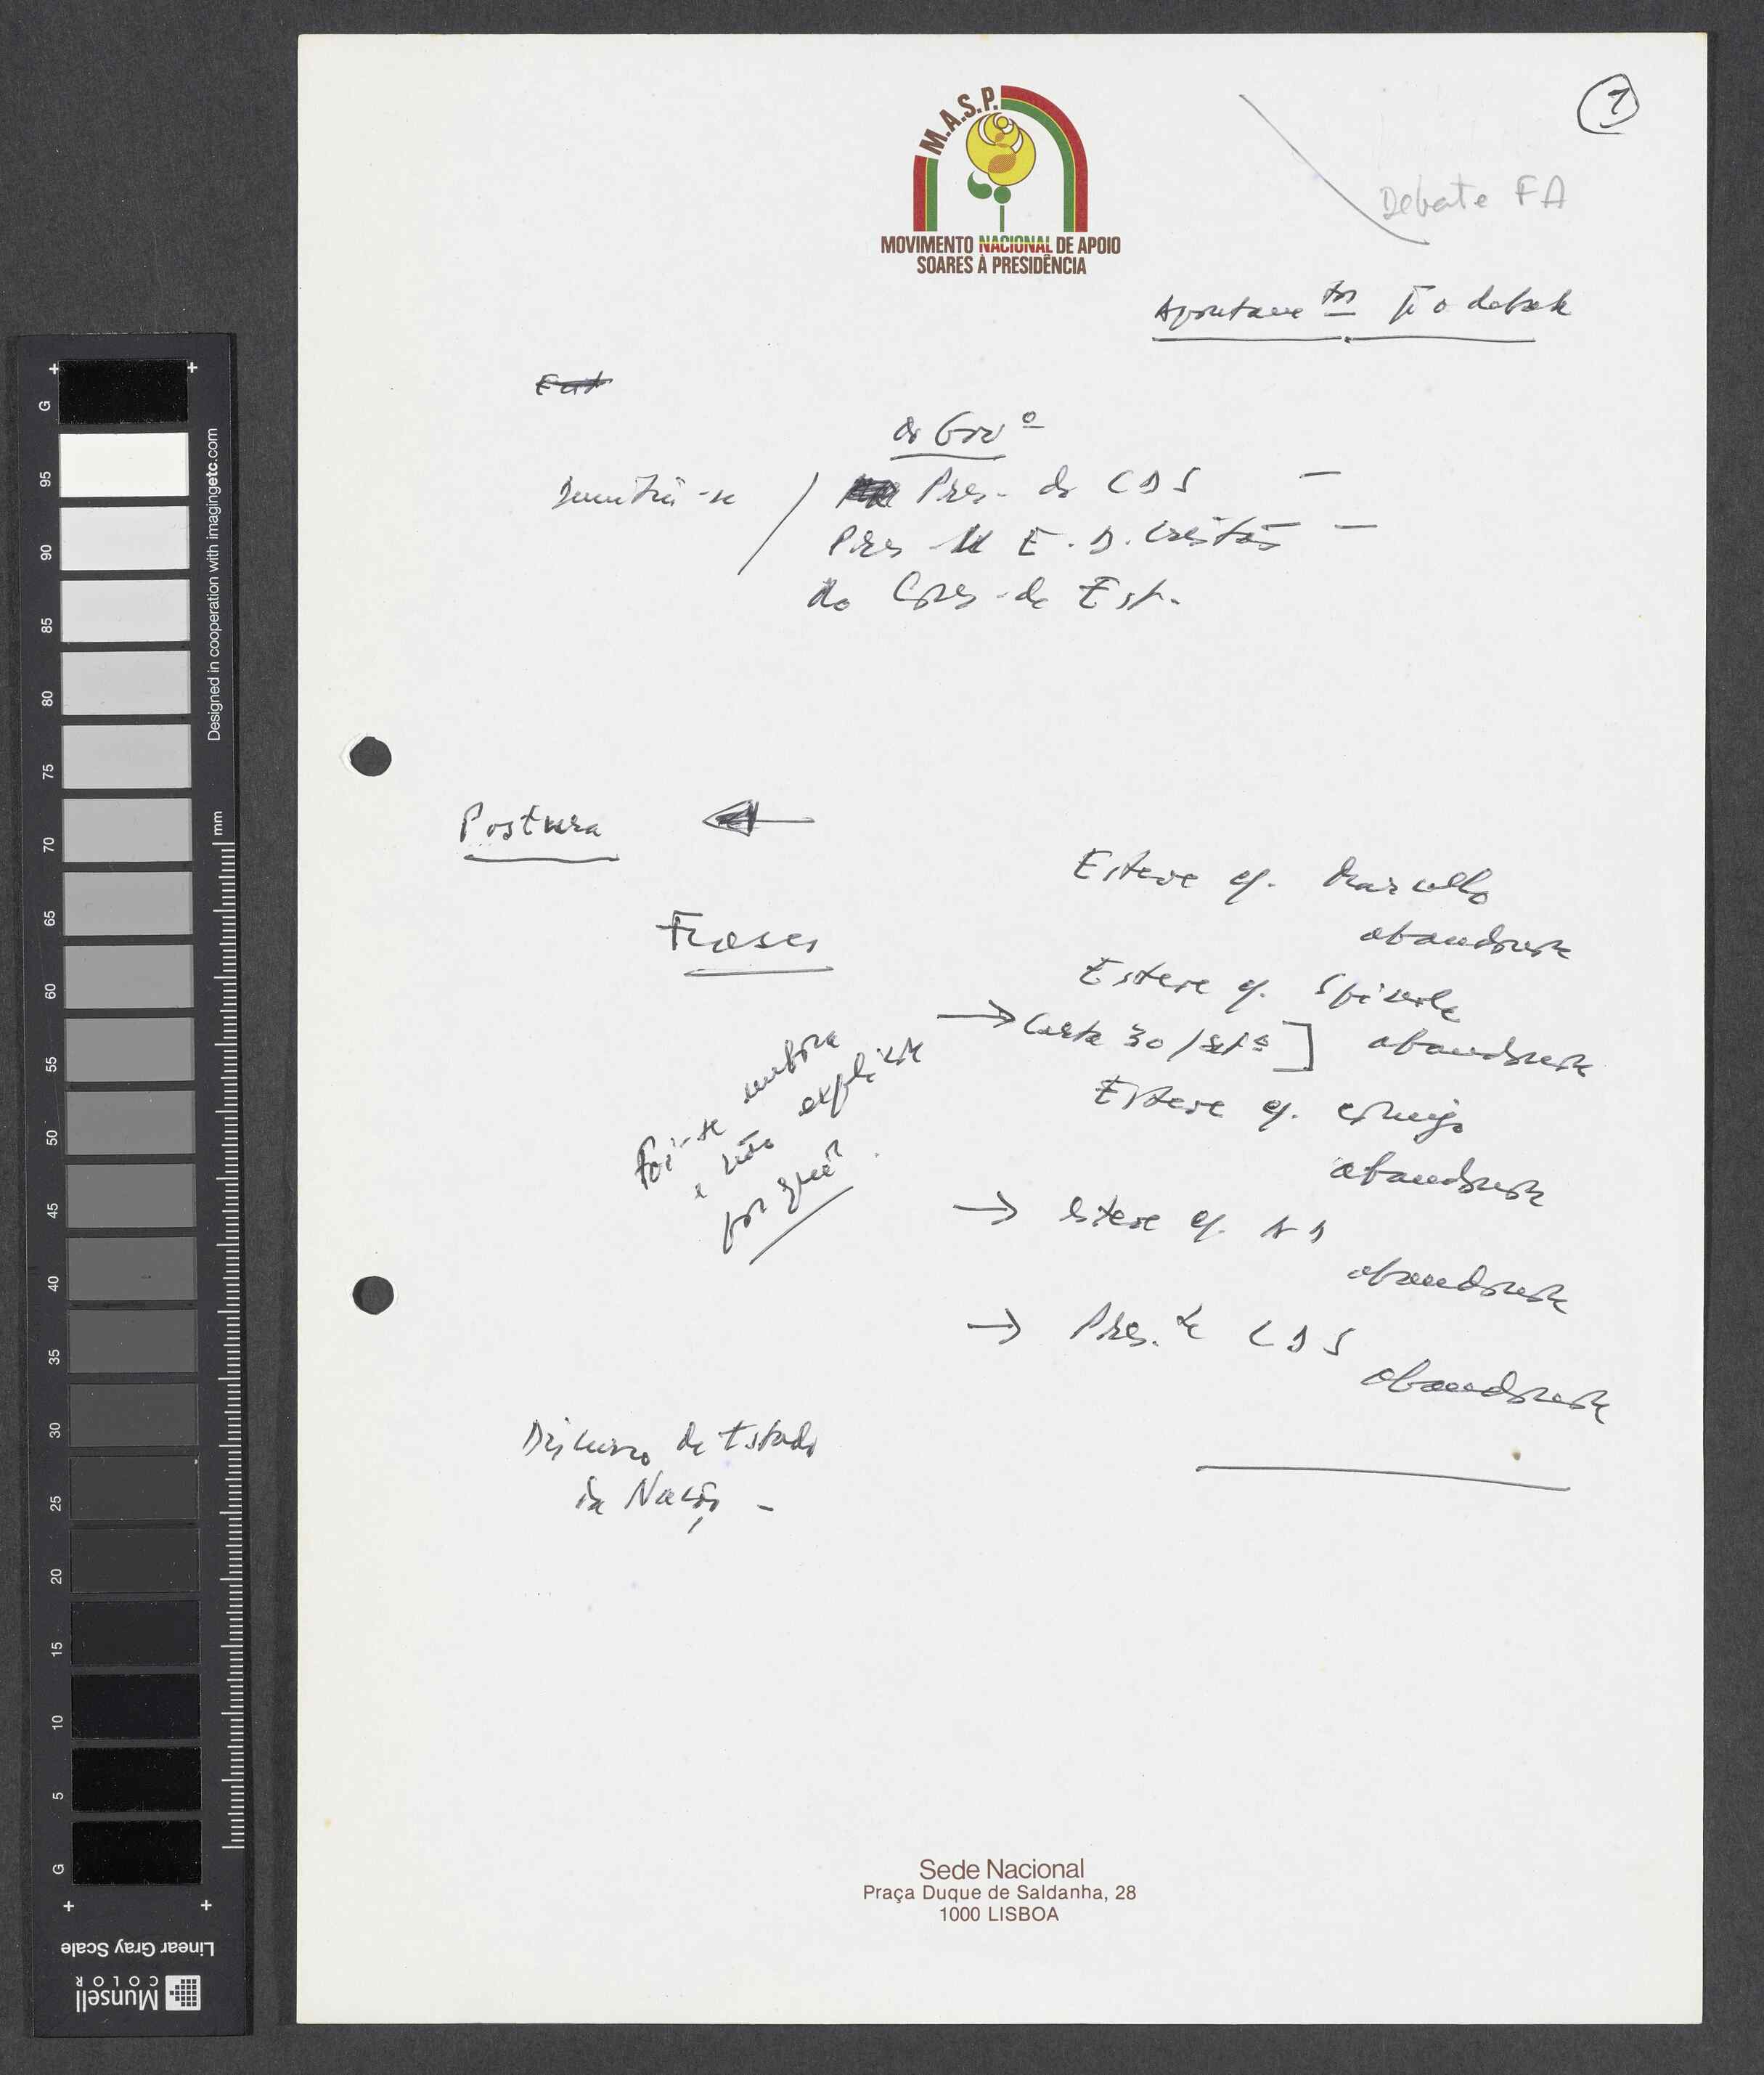 1
M.A.S.P.
MOVIMENTO NACIONAL DE APOIO
SOARES À PRESIDÊNCIA
Debate FA
Apontamentos p.ª o debate
do Govº
Demitiu-se / Pres. do CDS –
Pres U E. D. Cristãs –
do Cons. de Est.
Postura
Frases
Esteve c/. Marcello
abandonou
Esteve c/. Spínola
→ Carta 30/set.º] abandonou
Esteve c/. comigo
abandonou
→ Esteve c/. AD
abandonou
→ Pres. do CDS
abandonou
Foi-se embora
e não explicou
por quê?
Discurso de Estado
da Nação –
Sede Nacional
Praça Duque de Saldanha, 28
1000 LISBOA
G
95
90
85
80
75
70
65
60
55
50
45
40
35
30
25
20
15
10
5
G
mm
Designed in cooperation with imagingetc.com
Linear Gray Scale
Munsell
COLOR